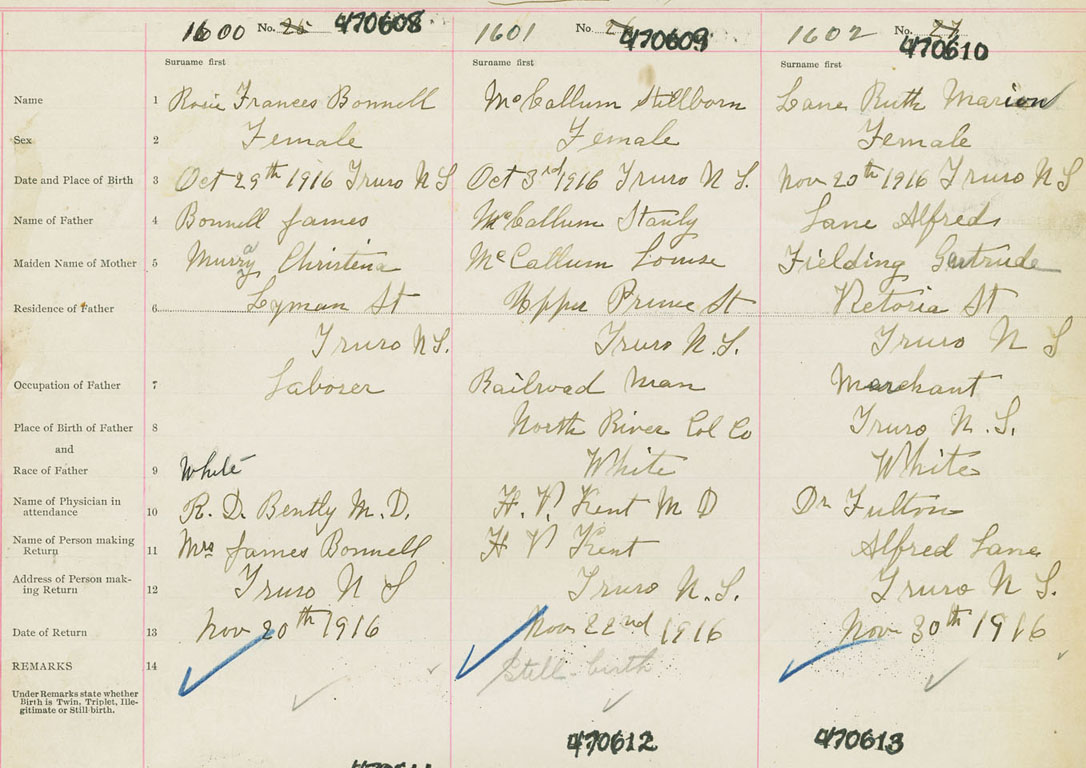 1600 No. 26 470608
1601 No. 470609
1602 No. 27 470610
Surname first Surname first Surname first
Name 1 Rosie Frances Bonnell McCallum Stillborn Lane Ruth Marion
Sex 2 Female Female Female
Date and Place of Birth 3 Oct 29th 1916 Truro N S Oct 3rd 1916 Truro N S. Nov 20th 1916 Truro N S
Name of Father 4 Bonnell James McCallum Stanly Lane Alfred
Maiden Name of Mother 5 Murray Christina McCallum Louise Fielding Gertrude
Residence of Father 6 Lyman St Upper Prince St Victoria St
Truro N S. Truro N.S. Truro N S
Occupation of Father 7 Laborer Railroad Man Merchant
Place of Birth of Father 8 North River Col Co Truro N.S.
and
Race of Father 9 White White White
Name of Physician in
attendance 10 R. D. Bently M.D. H. V. Kent M D Dr Fulton
Name of Person making
Return 11 Mrs James Bonnell H V Kent Alfred Lane
Address of Person mak-
ing Return 12 Truro N S Truro N.S. Truro N S.
Date of Return 13 Nov 20th 1916 Nov 22nd 1916 Nov 30th 1916
REMARKS 14 Still-birth
Under Remarks state whether
Birth is Twin, Triplet, Ille-
gitimate or Still-birth.
470612 470613